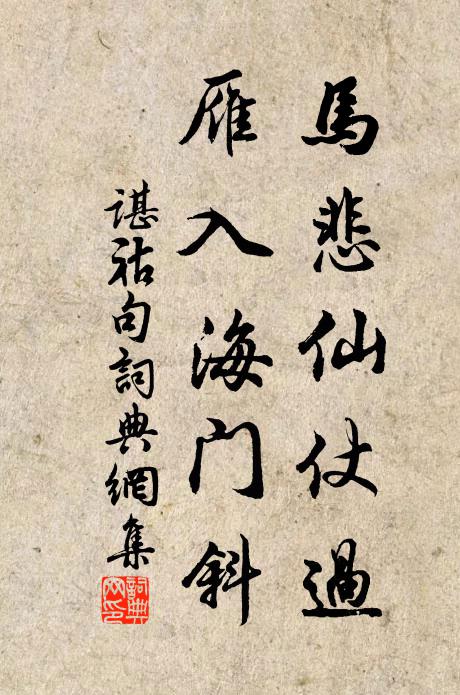 馬悲仙仗過
雁入海門斜
諶祜句詞典網集
詞典
网印